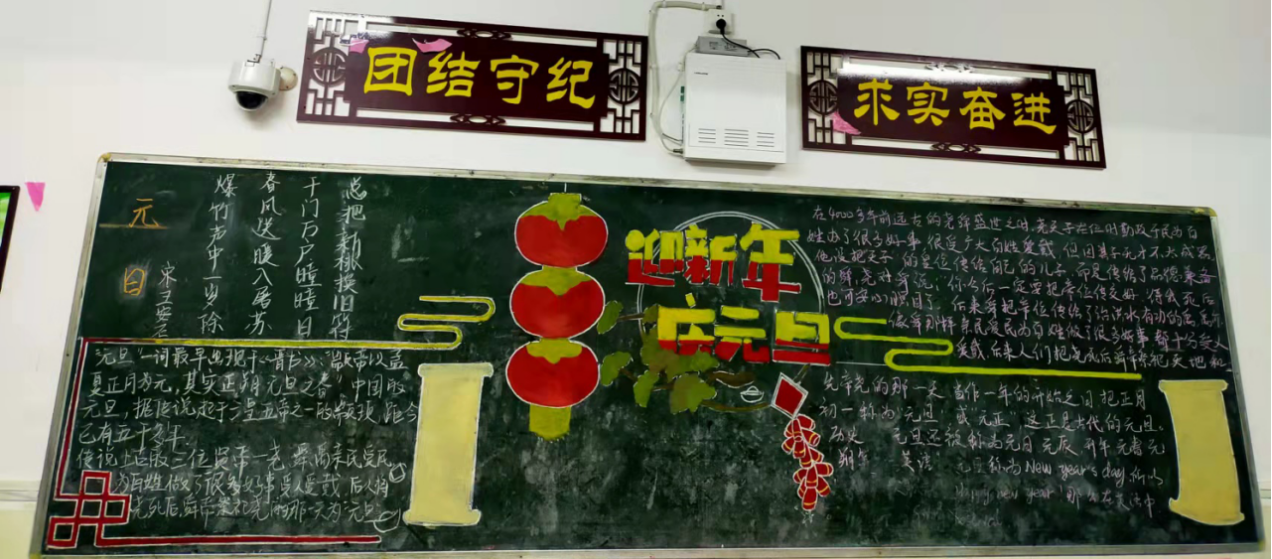 团结守纪
求实奋进
元日
宋 王安石
爆竹声中一岁除
春风送暖入屠苏
千门万户曈曈日
总把新桃换旧符
迎新年
庆元旦
"元旦"一词最早出现于《晋书》：
夏正月为元，其实正朔元旦之春"中国的
元旦，据传说起于三皇五帝之一的颛顼，距今
已有五千多年。
为百姓做了很多好事受人爱戴 后人将
在4000多年前远古的尧舜盛世之时，尧天子在位时勤政于民为百
姓办了很多好事，很受广大百姓爱戴，但因其子无才不太成器
他没把天子的皇位传给自己的儿子，而是传给了品德
的舜，尧对舜说：你今后一定要把帝位传交好，待我死后
也可安心瞑目了。后来舜把帝位传给了治洪水有功的禹，禹
像舜那样亲民爱民为百姓做了很多好事，都十分受人
爱戴，后来人们把尧死后
先帝尧的那一天 当作一年的开始之日 把正月
初一称为"元旦" 或元正，这正是古代的元旦。
历史 元旦还被称为元日 元辰
元旦称为New year's day